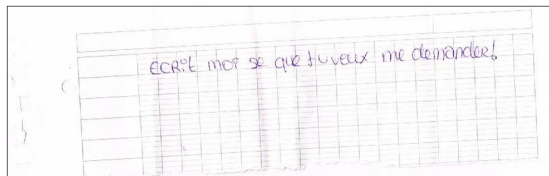 ECRit moi se que tu veux me demander!